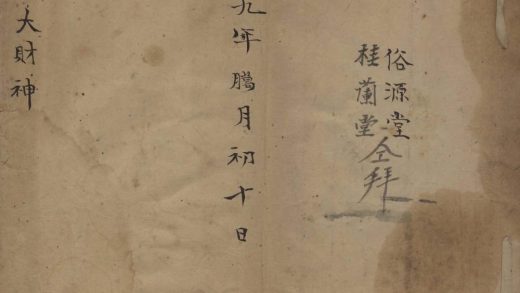 俗源堂
桂蘭堂
仝拜
九年臘月初十日
大財神